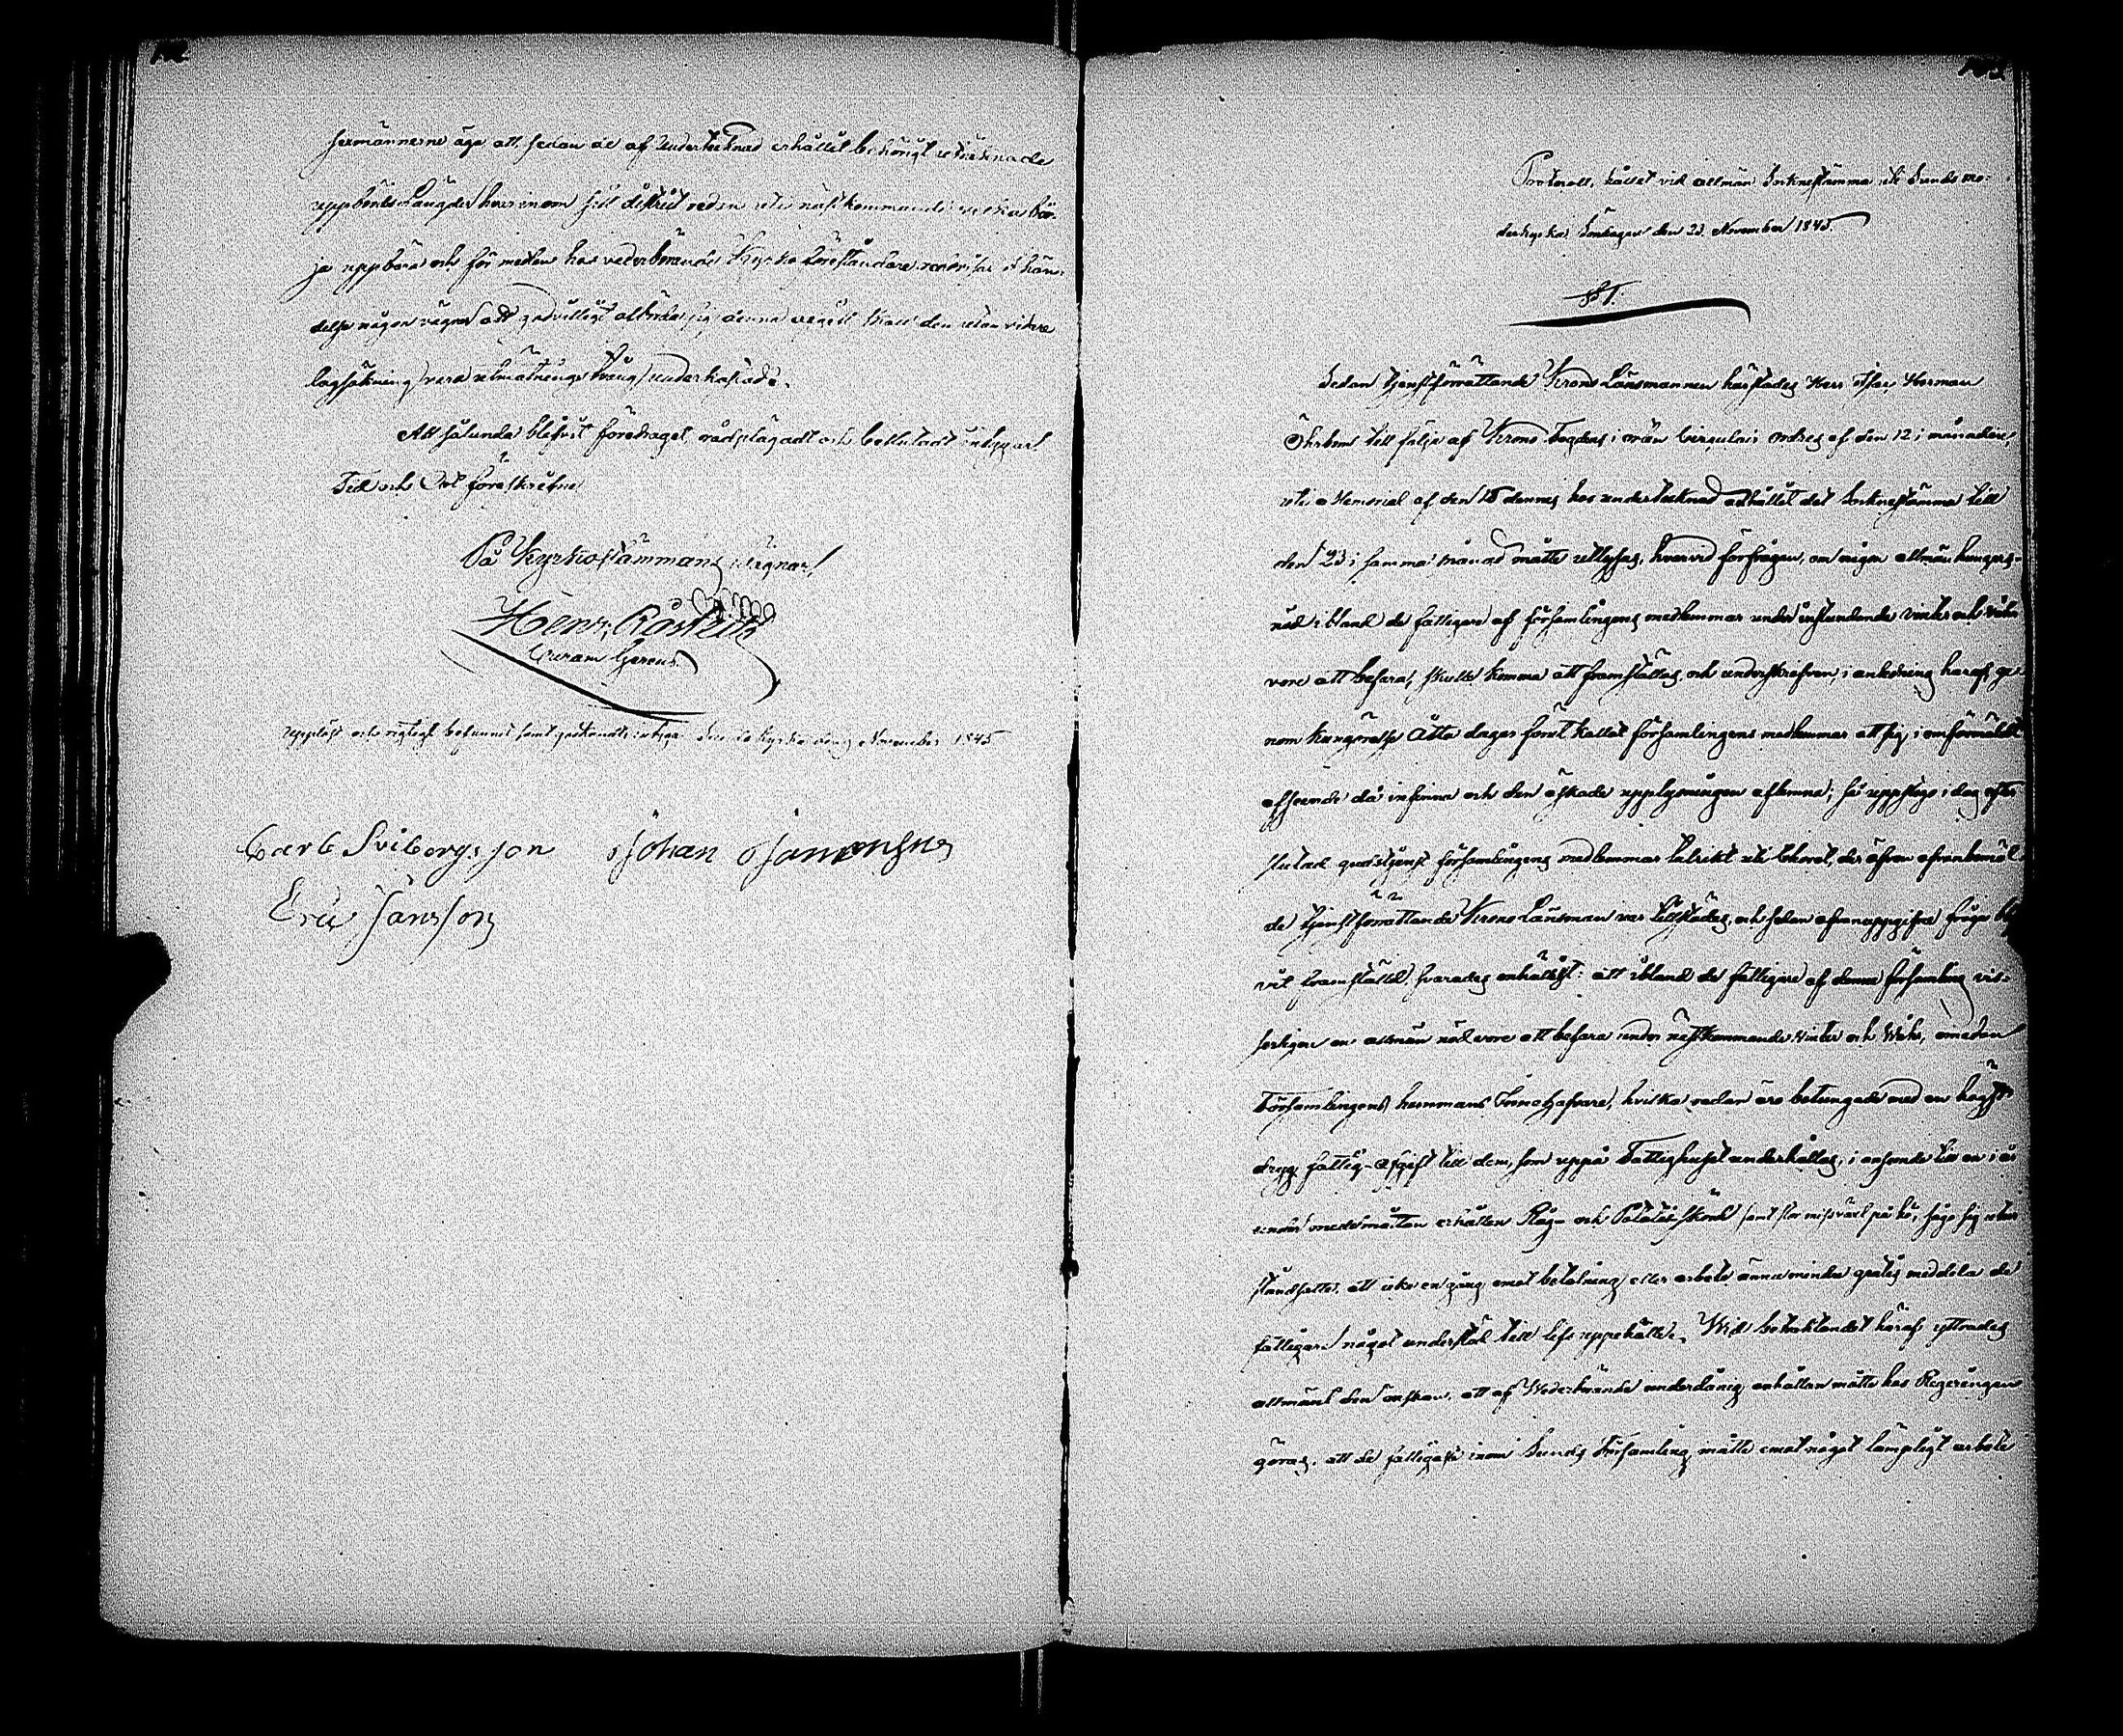 102
sexmännerne äga att, sedan de af undertecknad erhållit behörigt uträknade
uppbörds Längder hvar inom sitt distrikt redan uti nästkommande vecka bör-
ja uppbära och för medlen hos vederbörande Kyrko föreståndare redovisa; i hän-
delse någon vägrar att godvilligt afbörda sig denna utgift skall den utan vidare
lagsökning vara utmätnings tvång underkastad.
Att sålunda blifvit föredraget, rådplägadt och beslutadt intygar.
Tid och Ort föreskrefne
På Kyrkostämmans vägnar,
Henr. Råstedt
Curam Gerens.
Uppläst och riktigt befunnit samt godkändt intyga Sunds Kyrka den November 1845
Carl Sviborgsson Johan
Eric Jansson
103
Protocoll, hållet vid allmän Socknestämma uti Sunds mo-
derkyrka Söndagen den 23 November 1845.
§ 1.
Sedan tjenstförrättande Krono Länsmannen härstädes Herr Isac Herman
Öhrbom till följe af Krono Fogdens i orten Circulair ordres af den 12 i månaden
uti Memorial af den 15 dennes hos undertecknad anhållit det Socknestämma till
den 23 i samma månad måtte utlysas, hvarvid förfrågan, om någon allmän hungers-
nöd ibland de fattigare af församlingens medlemmar under instundande vinter och vår
vore att befara, skulle komma att framställas, och underskrifven, i anledning häraf, ge-
nom kungörelse Åtta dagar förut kallat församlingens medlemmar att sig i omförmäldt
afseende då infinna och den äskade upplysningen aflemna; så uppstego i dag efter
slutad gudstjenst församlingens medlemmar talrikt uti Choret, der äfven ofvanbemäl-
de tjenstförrättande Krono Länsman var tillstädes, och sedan ofvanuppgifne fråga bli-
vit framställd, svarades enhälligt: att ibland de fattigare af denna församling vis-
serligen en allmän nöd vore att befara under nästkommande Vinter och Vår, emedan
Församlingens hemmans Innehafvare, hvilka redan äro betungade med en högst
dryg fattig-afgift till dem, som uppå Fattighuset underhållas, i anseende till en i år
under medelmåttan erhållen Råg- och Potatoesskörd samt stor missväxt på hö, sågo sig utan
stånd satte, att icke en gång emot betalning eller arbete ännu mindre gratis meddela de
fattigare något understöd till lifs uppehälle. Wid betraktandet häraf yttrades
allmänt den önskan, att af Wederbörande underdånig anhållan måtte hos Regeringen
göras, att de fattigaste inom Sunds Församling måtte emot något lämpligt arbete